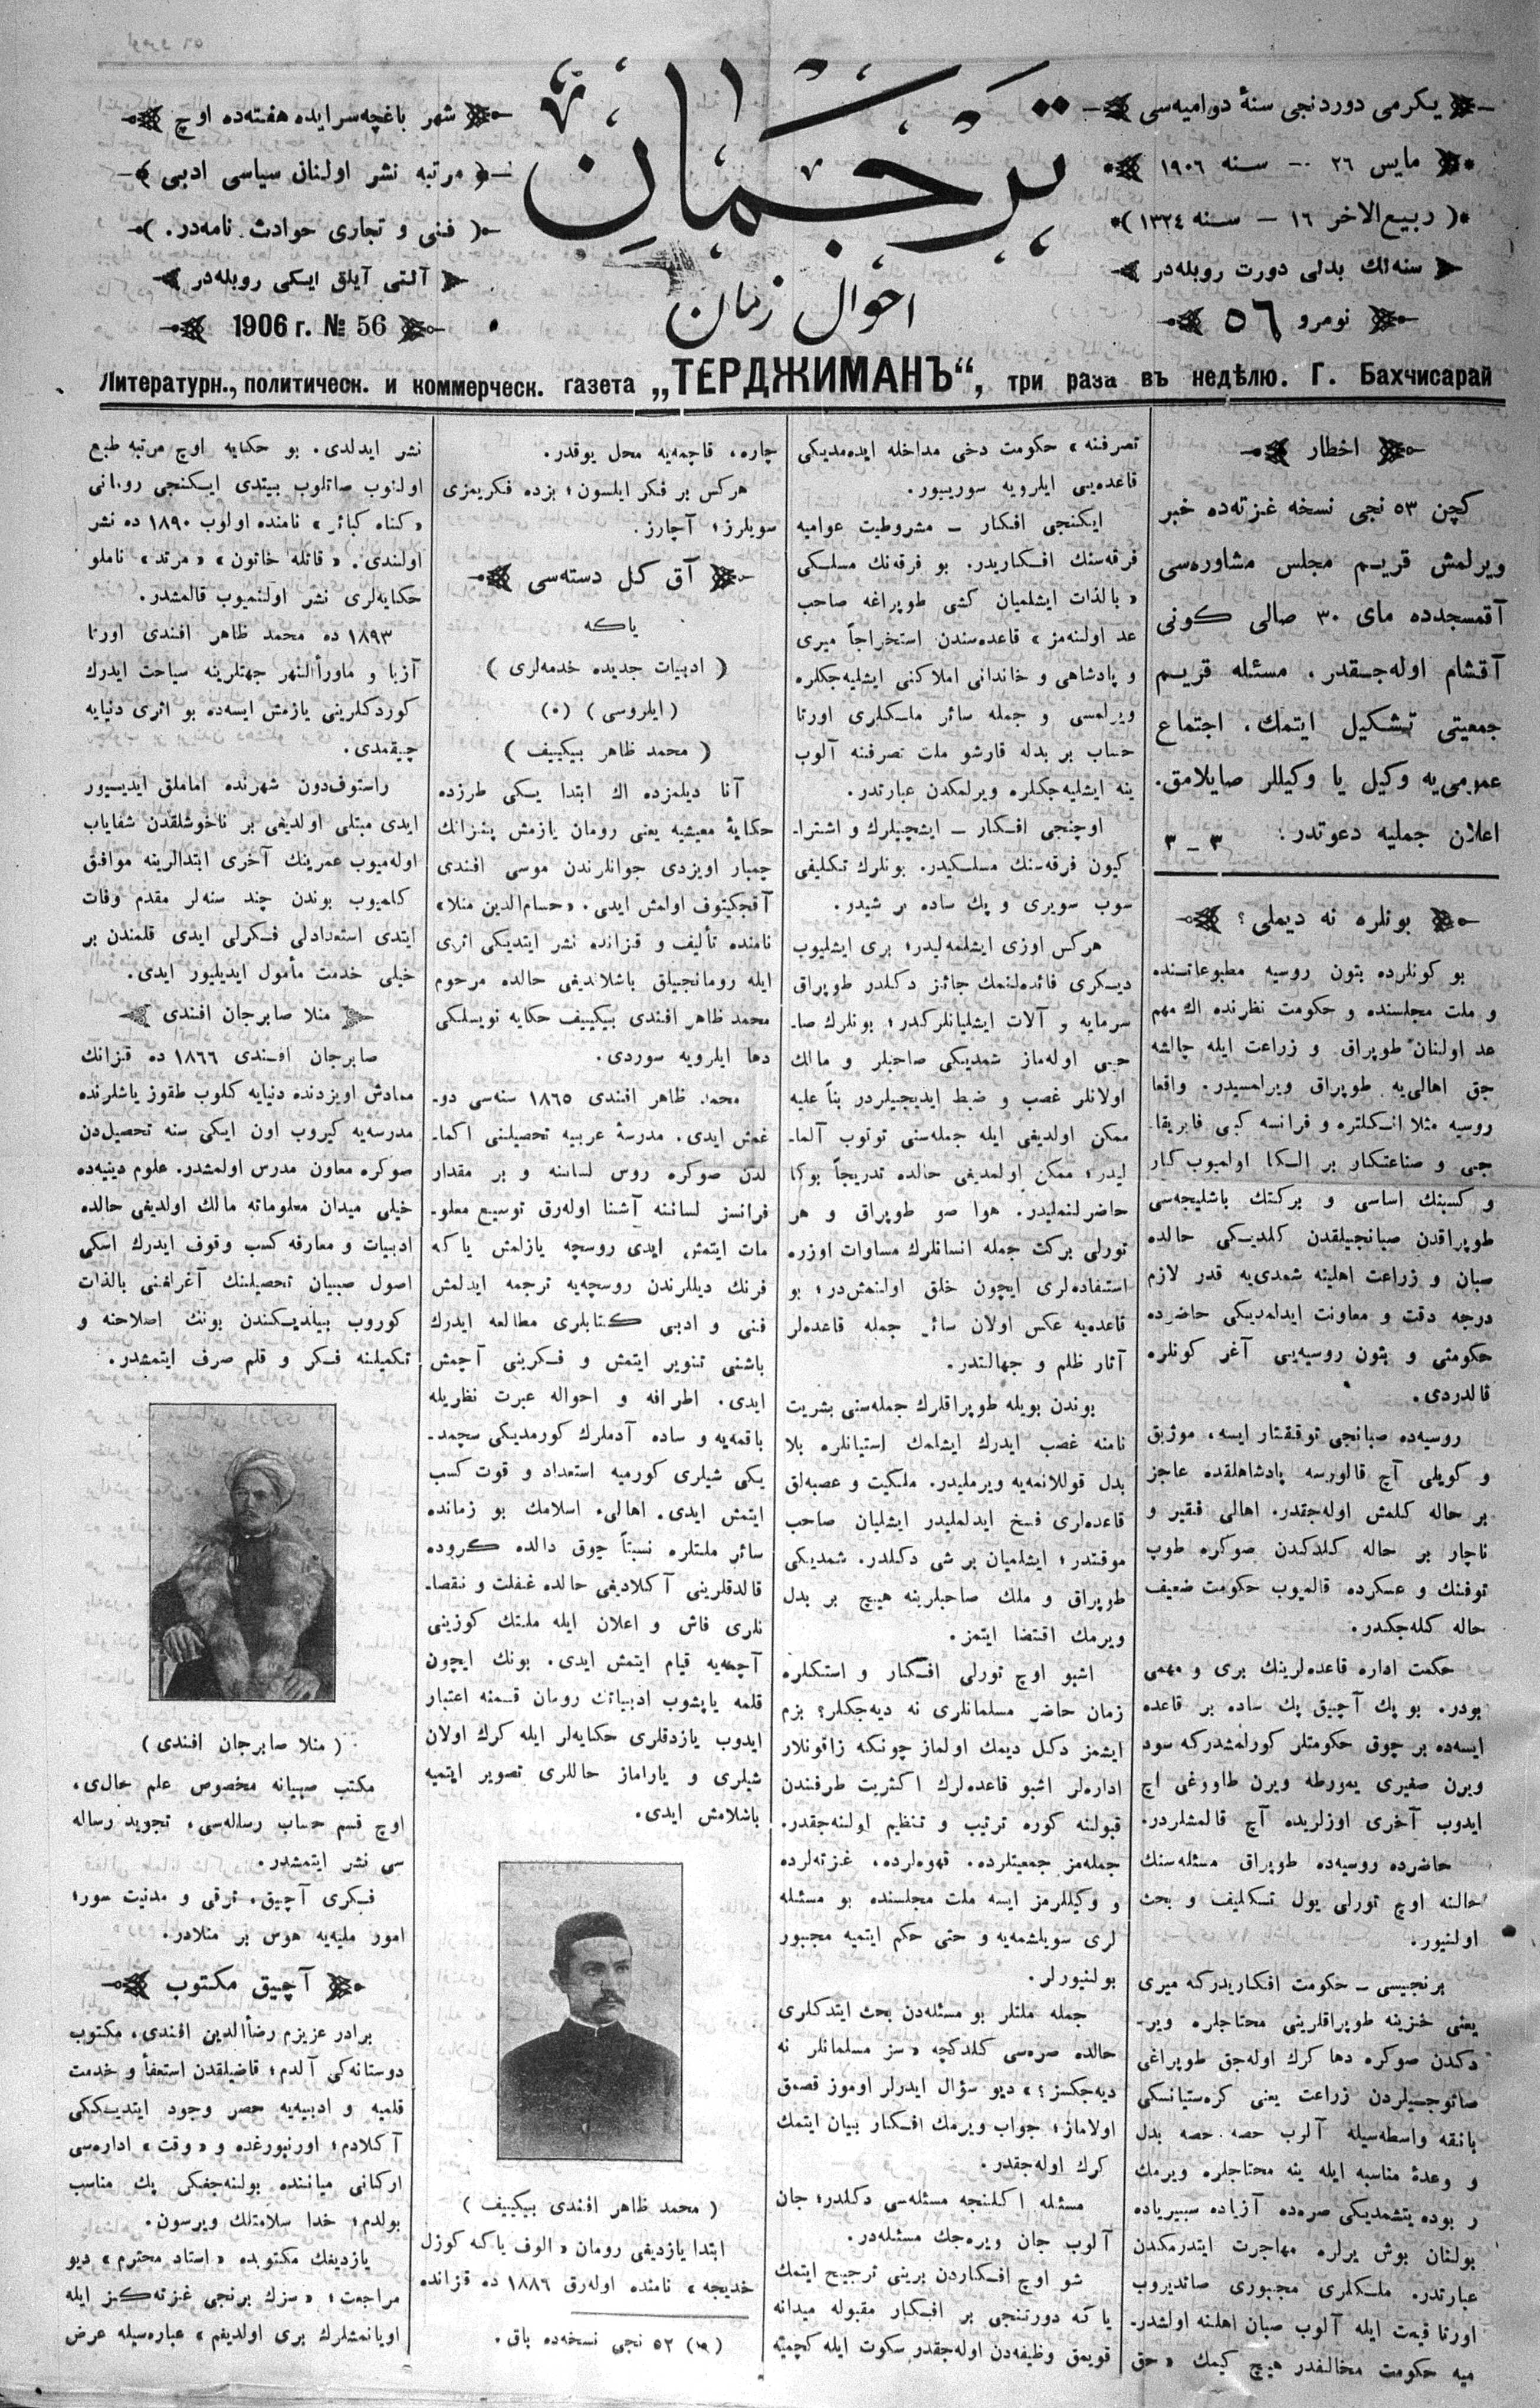 يكرمی دوردنجی سنهٔ دوامیه‌سی
مايس ٢٦ — سنه ١٩٠٦
( ربيع‌الاخر ١٦ — سنه ١٣٢٤ )
سنه‌لك بدلی دورت روبله‌در
نومرو ٥٦
ترجمان
احوال زمان
شهر باغچه‌سرايده هفته‌ده اوچ
مرتبه نشر اولنان سياسی ادبی
( فنی و تجاری حوادث نامه‌در. )
آلتی آيلق ايكی روبله‌در
1906 г. № 56
Литературн., политическ. и коммерческ. газета „ТЕРДЖИМАНЪ“, три раза въ недѣлю. Г. Бахчисарай
اخطار
كچن ٥٣ نجی نسخه غزته‌ده خبر
ويرلمش قريم مجلس مشاوره‌سی
آقمسجدده مای ٣٠ صالی كونی
آقشام اوله‌جقدر. مسئله قريم
جمعيتی تشكيل ايتمك، اجتماع
عمومی‌يه وكيل يا وكيللر صايلامق.
اعلان جمليه دعوتدر: ٣ — ٣
بونلره نه ديملی؟
بو كونلرده بتون روسيه مطبوعاتنده
و ملت مجلسنده و حكومت نظرنده اك مهم
عد اولنان طوپراق و زراعت ايله چالشه
جق اهالی‌يه طوپراق ويرلمسيدر. واقعا
روسيه مثلا انكلتره و فرانسه كبی فابريقا-
جی و صناعتكار بر الكا اولميوب كار
و كسبنك اساسی و بركتك باشليجه‌سی
طوپراقدن صبانجيلقدن كلديكی حالده
صبان و زراعت اهلينه شمدی‌يه قدر لازم
درجه دقت و معاونت ايدلمديكی حاضرده
حكومتی و بتون روسيه‌يی آغر كونلره
قالدردی.
روسيه‌ده صبانجی توقفتار ايسه، موژيق
و كويلی آچ قالورسه پادشاهلقده عاجز
بر حاله كلمش اوله‌جقدر. اهالی فقير و
ناچار بر حاله كلدكدن صوكره طوپ
توفنك و عسكرده قالميوب حكومت ضعيف
حاله كله‌جكدر.
حكمت اداره قاعده‌لرينك بری و مهمی
بودر. بو پك آچيق پك ساده بر قاعده
ايسه‌ده بر چوق حكومتلر كورلمشدركه سود
ويرن صغيری يمورطه ويرن طاووغی آچ
ايدوب آخری اوزلريده آچ قالمشلردر.
حاضرده روسيه‌ده طوپراق مسئله‌سنك
حالنه اوچ تورلی يول تكليف و بحث
اولنيور.
برنجيسی — حكومت افكاريدركه ميری
يعنی خزينه طوپراقلرينی محتاجلره وير-
دكدن صوكره دها كرك اوله‌جق طوپراغی
صاتوجيلردن زراعت يعنی كره‌ستيانسكی
بانقه واسطه‌سيله آلوب حصه حصه بدل
و وعدهٔ مناسبه ايله ينه محتاجلره ويرمك
بوده يتشمديكی صره‌ده آزياده سيبيرياده
بولنان بوش يرلره مهاجرت ايتدرمكدن
عبارتدر. ملكلری مجبوری صاتديروب
اورتا قيمت ايله آلوب صبان اهلنه اولشدر-
ميه حكومت مخالفدر هيچ كيمك « حق
تصرفنه » حكومت دخی مداخله ايده‌مديكی
قاعده‌يی ايلرويه سوريیور.
ايكنجی افكار — مشروطيت عواميه
فرقه‌سنك افكاريدر. بو فرقه‌نك مسلكی
« بالذات ايشلميان كشی طوپراغه صاحب
عد اولنه‌مز » قاعده‌سندن استخراجاً ميری
و پادشاهی و خاندانی املاكنی ايشليه‌جكلره
ويرلمسی و جمله سائر ملكلری اورتا
حساب بر بدله قارشو ملت تصرفنه آلوب
ينه ايشليه‌جكلره ويرلمكدن عبارتدر.
اوچنجی افكار — ايشچيلرك و اشترا-
كيون فرقه‌سنك مسلكيدر. بونلرك تكليفی
سوب سويری و پك ساده بر شيدر.
هركس اوزی ايشلمه‌ليدر؛ بری ايشليوب
ديكری فائده‌لنمك جائز دكلدر طوپراق
سرمايه و آلات ايشليانلركدر؛ بونلرك صا-
حبی اوله‌ماز شمديكی صاحبلر و مالك
اولانلر غصب و ضبط ايديجيلردر بناً عليه
ممكن اولديغی ايله جمله‌سنی توتوب آلما-
ليدر؛ ممكن اولمديغی حالده تدريجاً بوكا
حاضرلنمليدر. هوا صو طوپراق و هر
تورلی بركت جمله انسانلرك مساوات اوزره
استفاده‌لری ايچون خلق اولنمش‌در؛ بو
قاعده‌يه عكس اولان سائر جمله قاعده‌لر
آثار ظلم و جهالتدر.
بوندن بويله طوپراقلرك جمله‌سنی بشريت
نامنه غصب ايدرك ايشلمك استيانلره بلا
بدل قوللانمه‌يه ويرمليدر. ملكيت و عصبه‌لق
قاعده‌لری فسخ ايدلمليدر ايشليان صاحب
موقتدر؛ ايشلميان بر شی دكلدر. شمديكی
طوپراق و ملك صاحبلرينه هيچ بر بدل
ويرمك اقتضا ايتمز.
اشبو اوچ تورلی افكار و استكلره
زمان حاضر مسلمانلری نه ديه‌جكلر؟ بزم
ايشمز دكل ديمك اولماز چونكه زاقونلار
اداره‌لر اشبو قاعده‌لرك اكثريت طرفندن
قبولنه كوره ترتيب و تنظيم اولنه‌جقدر.
جمله‌مز جمعيتلرده، قهوه‌لرده، غزته‌لرده
و وكيللرمز ايسه ملت مجلسنده بو مسئله
لری سويلشمه‌يه و حتی حكم ايتميه مجبور
بولنيورلر.
جمله ملتلر بو مسئله‌دن بحث ايتدكلری
حالده صره‌سی كلدكچه « سز مسلمانلر نه
ديه‌جكسز؟ » ديو سؤال ايدرلر اوموز قصمق
اولاماز؛ جواب ويرمك افكار بيان ايتمك
كرك اوله‌جقدر.
مسئله اكلنجه مسئله‌سی دكلدر؛ جان
آلوب جان ويره‌جك مسئله‌در.
شو اوچ افكاردن برينی ترجيح ايتمك
ياكه دورتنجی بر افكار مقبوله ميدانه
قويمق وظيفه‌دن اوله‌جقدر سكوت ايله كچميه
چاره، قاچمه‌يه محل يوقدر.
هركس بر فكر ايلسون؛ بزده فكريمزی
سويلرز؛ آچارز.
آق كل دسته‌سی
ياكه
( ادبيات جديده خدمه‌لری )
( ايلروسی ) (٥)
( محمد ظاهر بيكييف )
آنا ديلمزده اك ابتدا يكی طرزده
حكايهٔ معيشيه يعنی رومان يازمش پنزانك
چمبار اويزدی جوانلرندن موسی افندی
آقجكيتوف اولمش ايدی. « حسام‌الدين منلا »
نامنده تأليف و قزانده نشر ايتديكی اثری
ايله رومانجيلق باشلانديغی حالده مرحوم
محمد ظاهر افندی بيكييف حكايه نويسلكی
دها ايلرويه سوردی.
محمد ظاهر افندی ١٨٦٥ سنه‌سی دو-
غمش ايدی. مدرسهٔ عربيه تحصيلنی اكما-
لدن صوكره روس لساننه و بر مقدار
فرانسز لساننه آشنا اوله‌رق توسيع معلو-
مات ايتمش ايدی روسچه يازلمش ياكه
فرنك ديللرندن روسچه‌يه ترجمه ايدلمش
فنی و ادبی كتابلری مطالعه ايدرك
باشنی تنوير ايتمش و فكرينی آچمش
ايدی. اطرافه و احواله عبرت نظريله
باقمه‌يه و ساده آدملرك كورمديكی سچمد-
يكی شيلری كورميه استعداد و قوت كسب
ايتمش ايدی. اهالیء اسلامك بو زمانده
سائر ملتلره نسبتاً چوق دالده كروده
قالدقلرينی آكلاديغی حالده غفلت و نقصا-
نلری فاش و اعلان ايله ملتك كوزينی
آچمه‌يه قيام ايتمش ايدی. بونك ايچون
قلمه ياپشوب ادبياتك رومان قسمنه اعتبار
ايدوب يازدقلری حكايه‌لر ايله كرك اولان
شيلری و ياراماز حاللری تصوير ايتميه
باشلامش ايدی.
( محمد ظاهر افندی بيكييف )
ابتدا يازديغی رومان « الوف ياكه كوزل
خديجه » نامنده اوله‌رق ١٨٨٦ ده قزانده
(٥) ٥٢ نجی نسخه‌ده باق.
نشر ايدلدی. بو حكايه اوچ مرتبه طبع
اولنوب صاتلوب بيتدی ايكنجی رومانی
« كناه كبائر » نامنده اولوب ١٨٩٠ ده نشر
اولندی. « قاتله خاتون » « مرتد » ناملو
حكايه‌لری نشر اولنميوب قالمشدر.
١٨٩٣ ده محمد ظاهر افندی اورتا
آزيا و ماورأالنهر جهتلرينه سياحت ايدرك
كوردكلرينی يازمش ايسه‌ده بو اثری دنيايه
چيقمدی.
راستوف‌دون شهرنده اماملق ايديیور
ايدی مبتلی اولديغی بر ناخوشلقدن شفاياب
اوله‌ميوب عمرينك آخری ابتدالرينه موافق
كلميوب بوندن چند سنه‌لر مقدم وفات
ايتدی استعدادلی فكرلی ايدی قلمندن بر
خيلی خدمت مأمول ايديليور ايدی.
منلا صابرجان افندی
صابرجان افندی ١٨٦٦ ده قزانك
ممادش اويزدنده دنيايه كلوب طقوز ياشلرنده
مدرسه‌يه كيروب اون ايكی سنه تحصيل‌دن
صوكره معاون مدرس اولمشدر. علوم دينيه‌ده
خيلی ميدان معلوماته مالك اولديغی حالده
ادبيات و معارفه كسب وقوف ايدرك اسكی
اصول صبيان تحصيلنك آغرلغنی بالذات
كوروب بيلديكندن بونك اصلاحنه و
تكميلنه فكر و قلم صرف ايتمشدر.
( منلا صابرجان افندی )
مكتب صبيانه مخصوص علم حالی،
اوچ قسم حساب رساله‌سی، تجويد رساله
سی نشر ايتمشدر.
فكری آچيق، ترقی و مدنيت سور؛
امور مليه‌يه هوس بر منلادر.
آچيق مكتوب
برادر عزيزم رضأالدين افندی، مكتوب
دوستانه‌كی آلدم؛ قاضيلقدن استعفأ و خدمت
قلميه و ادبيه‌يه حصر وجود ايتديككی
آكلادم؛ اورنبورغده و « وقت » اداره‌سی
اركانی مياننده بولنه‌جغكی پك مناسب
بولدم؛ خدا سلامتلك ويرسون.
يازديغك مكتوبده « استاد محترم » ديو
مراجعت؛ « سزك برنجی غزته‌كز ايله
اويانمشلرك بری اولديغم » عباره‌سيله عرض